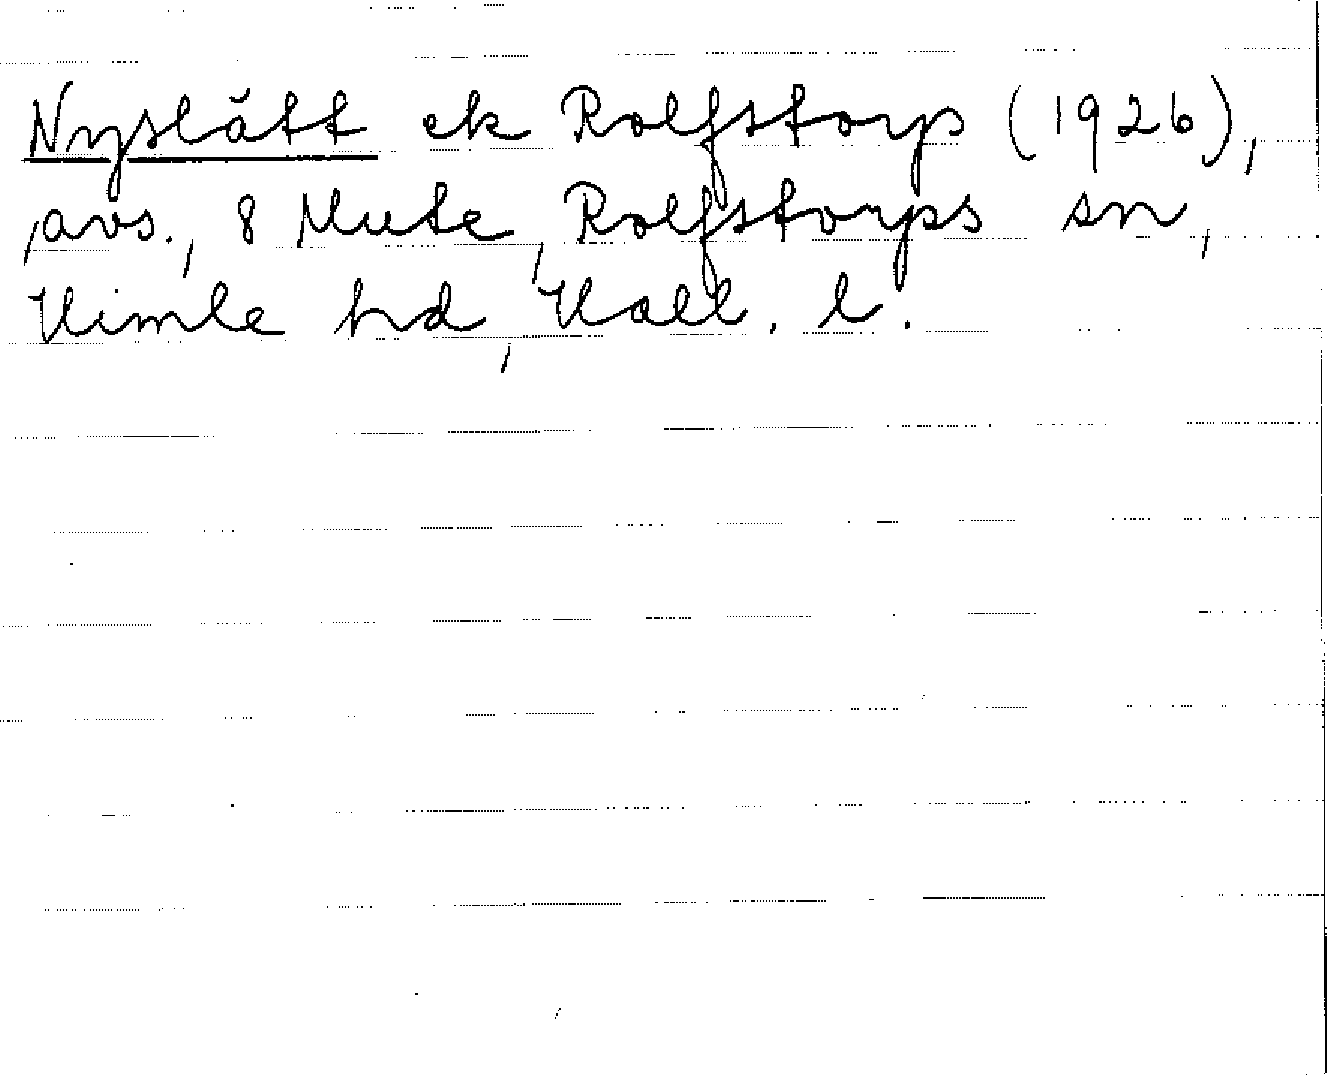 Nyslått ek Rolfstorp (1926),
avs., 8 Mute, Rolfstorps sn,
Himle hd, Hall. l.